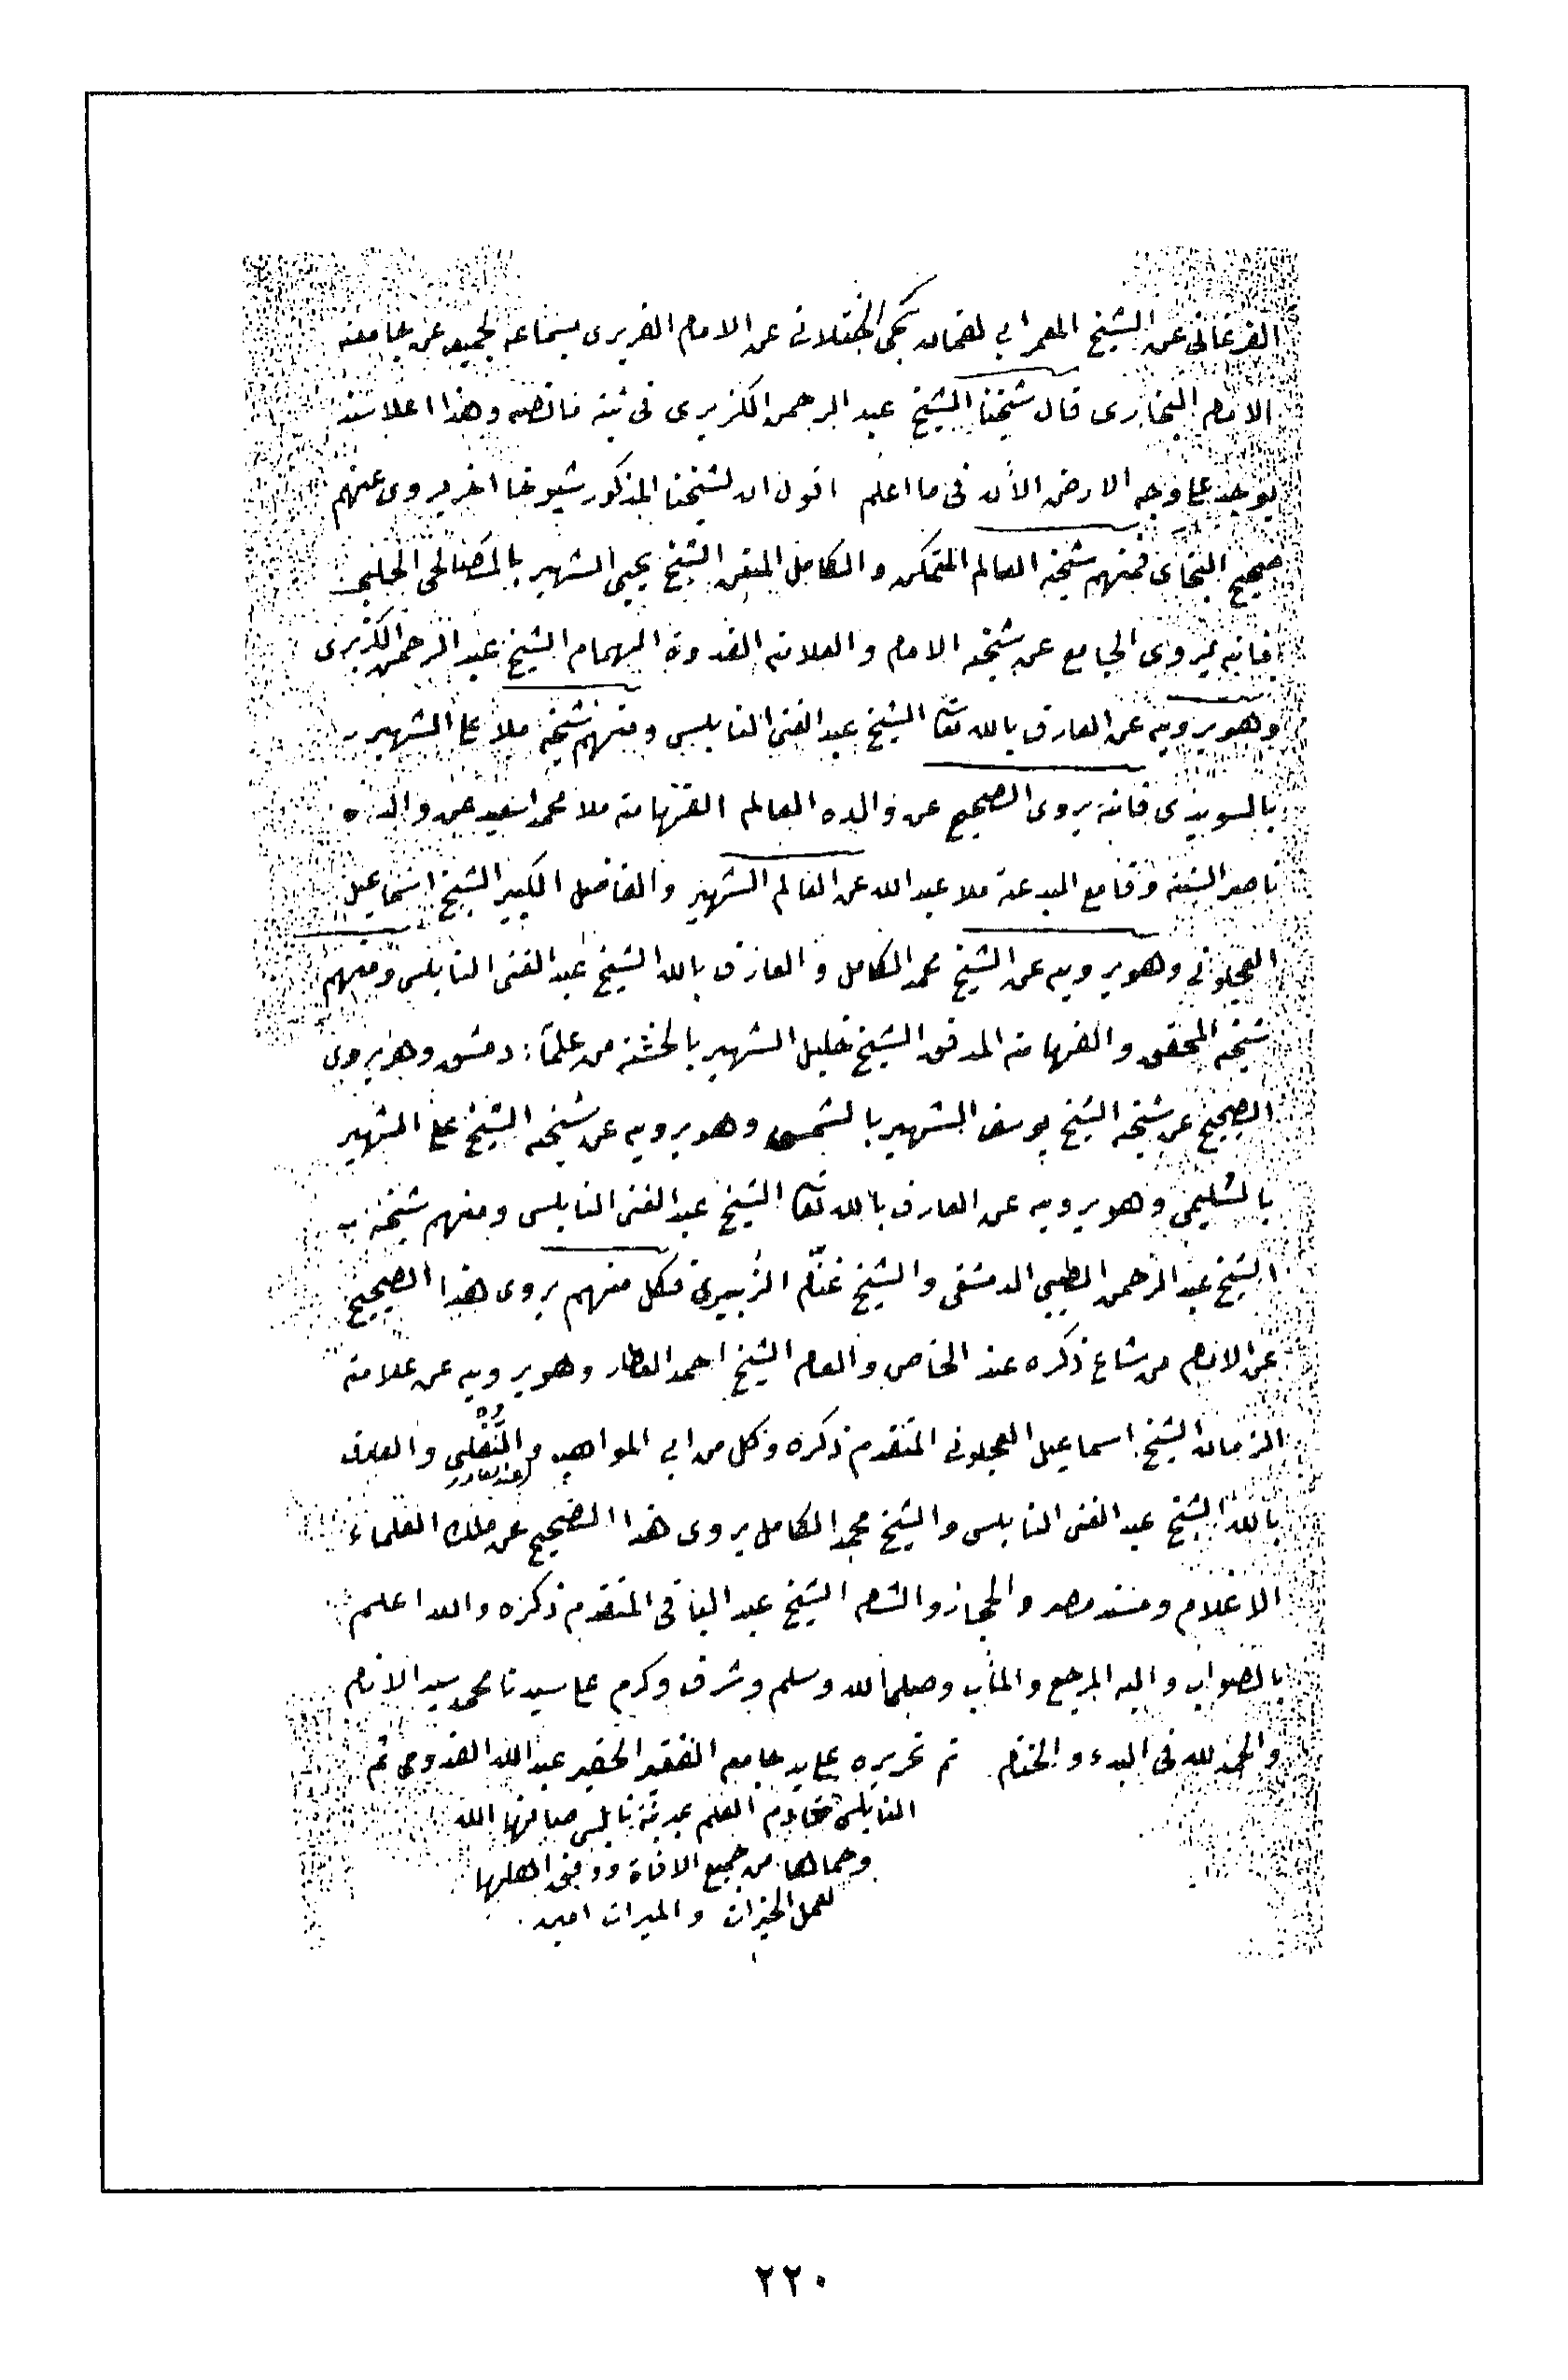 الفرغاني عن الشيخ المعمر ابي لقمان يحي الختلاني عن الامام الفربري بسماعه لجميعه عن جامعه
الامام البخاري قال شيخنا الشيخ عبد الرحمن الكزبري في ثبته ما نصه وهذا اعلا سند
يوجد على وجه الارض الآن في ما اعلم اقول ان لشيخنا المذكور شيوخا اخر يروي عنهم
صحيح البخاري فمنهم شيخه العالم المتمكن والكامل المتقن الشيخ يحيى الشهير بالمصالحي الحلبي
فانه يروي الجامع عن شيخه الامام والعلامه القدوة الهمام الشيخ عبد الرحمن الكزبري
وهو يرويه عن العارف بالله تعا الشيخ عبد الغني النابلسي ومنهم شيخه ملا على الشهير
بالسويدي فانه يروي الصحيح عن والده العالم الفهامة ملا محمد اسعيد عن والده
ناصر السنه وقامع البدعة ملا عبد الله عن العالم الشهير والفاضل الكبير الشيخ اسماعيل
العجلوني وهو يرويه عن الشيخ محمد الكامل والعارف بالله الشيخ عبد الغني النابلسي ومنهم
شيخه المحقق والفهامه المدقق الشيخ خليل الشهير بالخشه من علماء دمشق وهو يروي
الصحيح عن شيخه الشيخ يوسف الشهير بالشمسي وهو يرويه عن شيخه الشيخ على الشهير
بالسليمي وهو يرويه عن العارف بالله تعا الشيخ عبد الغني النابلسي ومنهم شيخه
الشيخ عبد الرحمن الطيبي الدمشقي والشيخ غنام الزبيري فكل منهم يروي هذا الصحيح
عن الامام من شاع ذكره عند الخاص والعام الشيخ احمد العطار وهو يرويه عن علامة
الزمان الشيخ اسماعيل العجلوني المتقدم ذكره وكل من ابي المواهب والتغلبي عبد القادر والعارف
بالله الشيخ عبد الغني النابلسي والشيخ محمد الكامل يروي هذا الصحيح عن ملك العلماء
الاعلام ومسند مصر والحجاز والشام الشيخ عبد الباقي المتقدم ذكره والله اعلم
بالصواب واليه المرجع والمأب وصلى الله وسلم وشرف وكرم على سيدنا محمد سيد الانام
والحمد لله في البدء والختام تم تحريره على يد جامعه الفقير الحقير عبد الله القدومي ثم
النابلسي خادم العلم بمدينة نابلس صانها الله
وحماها من جميع الافاة ووفق اهلها
لعمل الخيرات والمبرات امين
٢٢٠